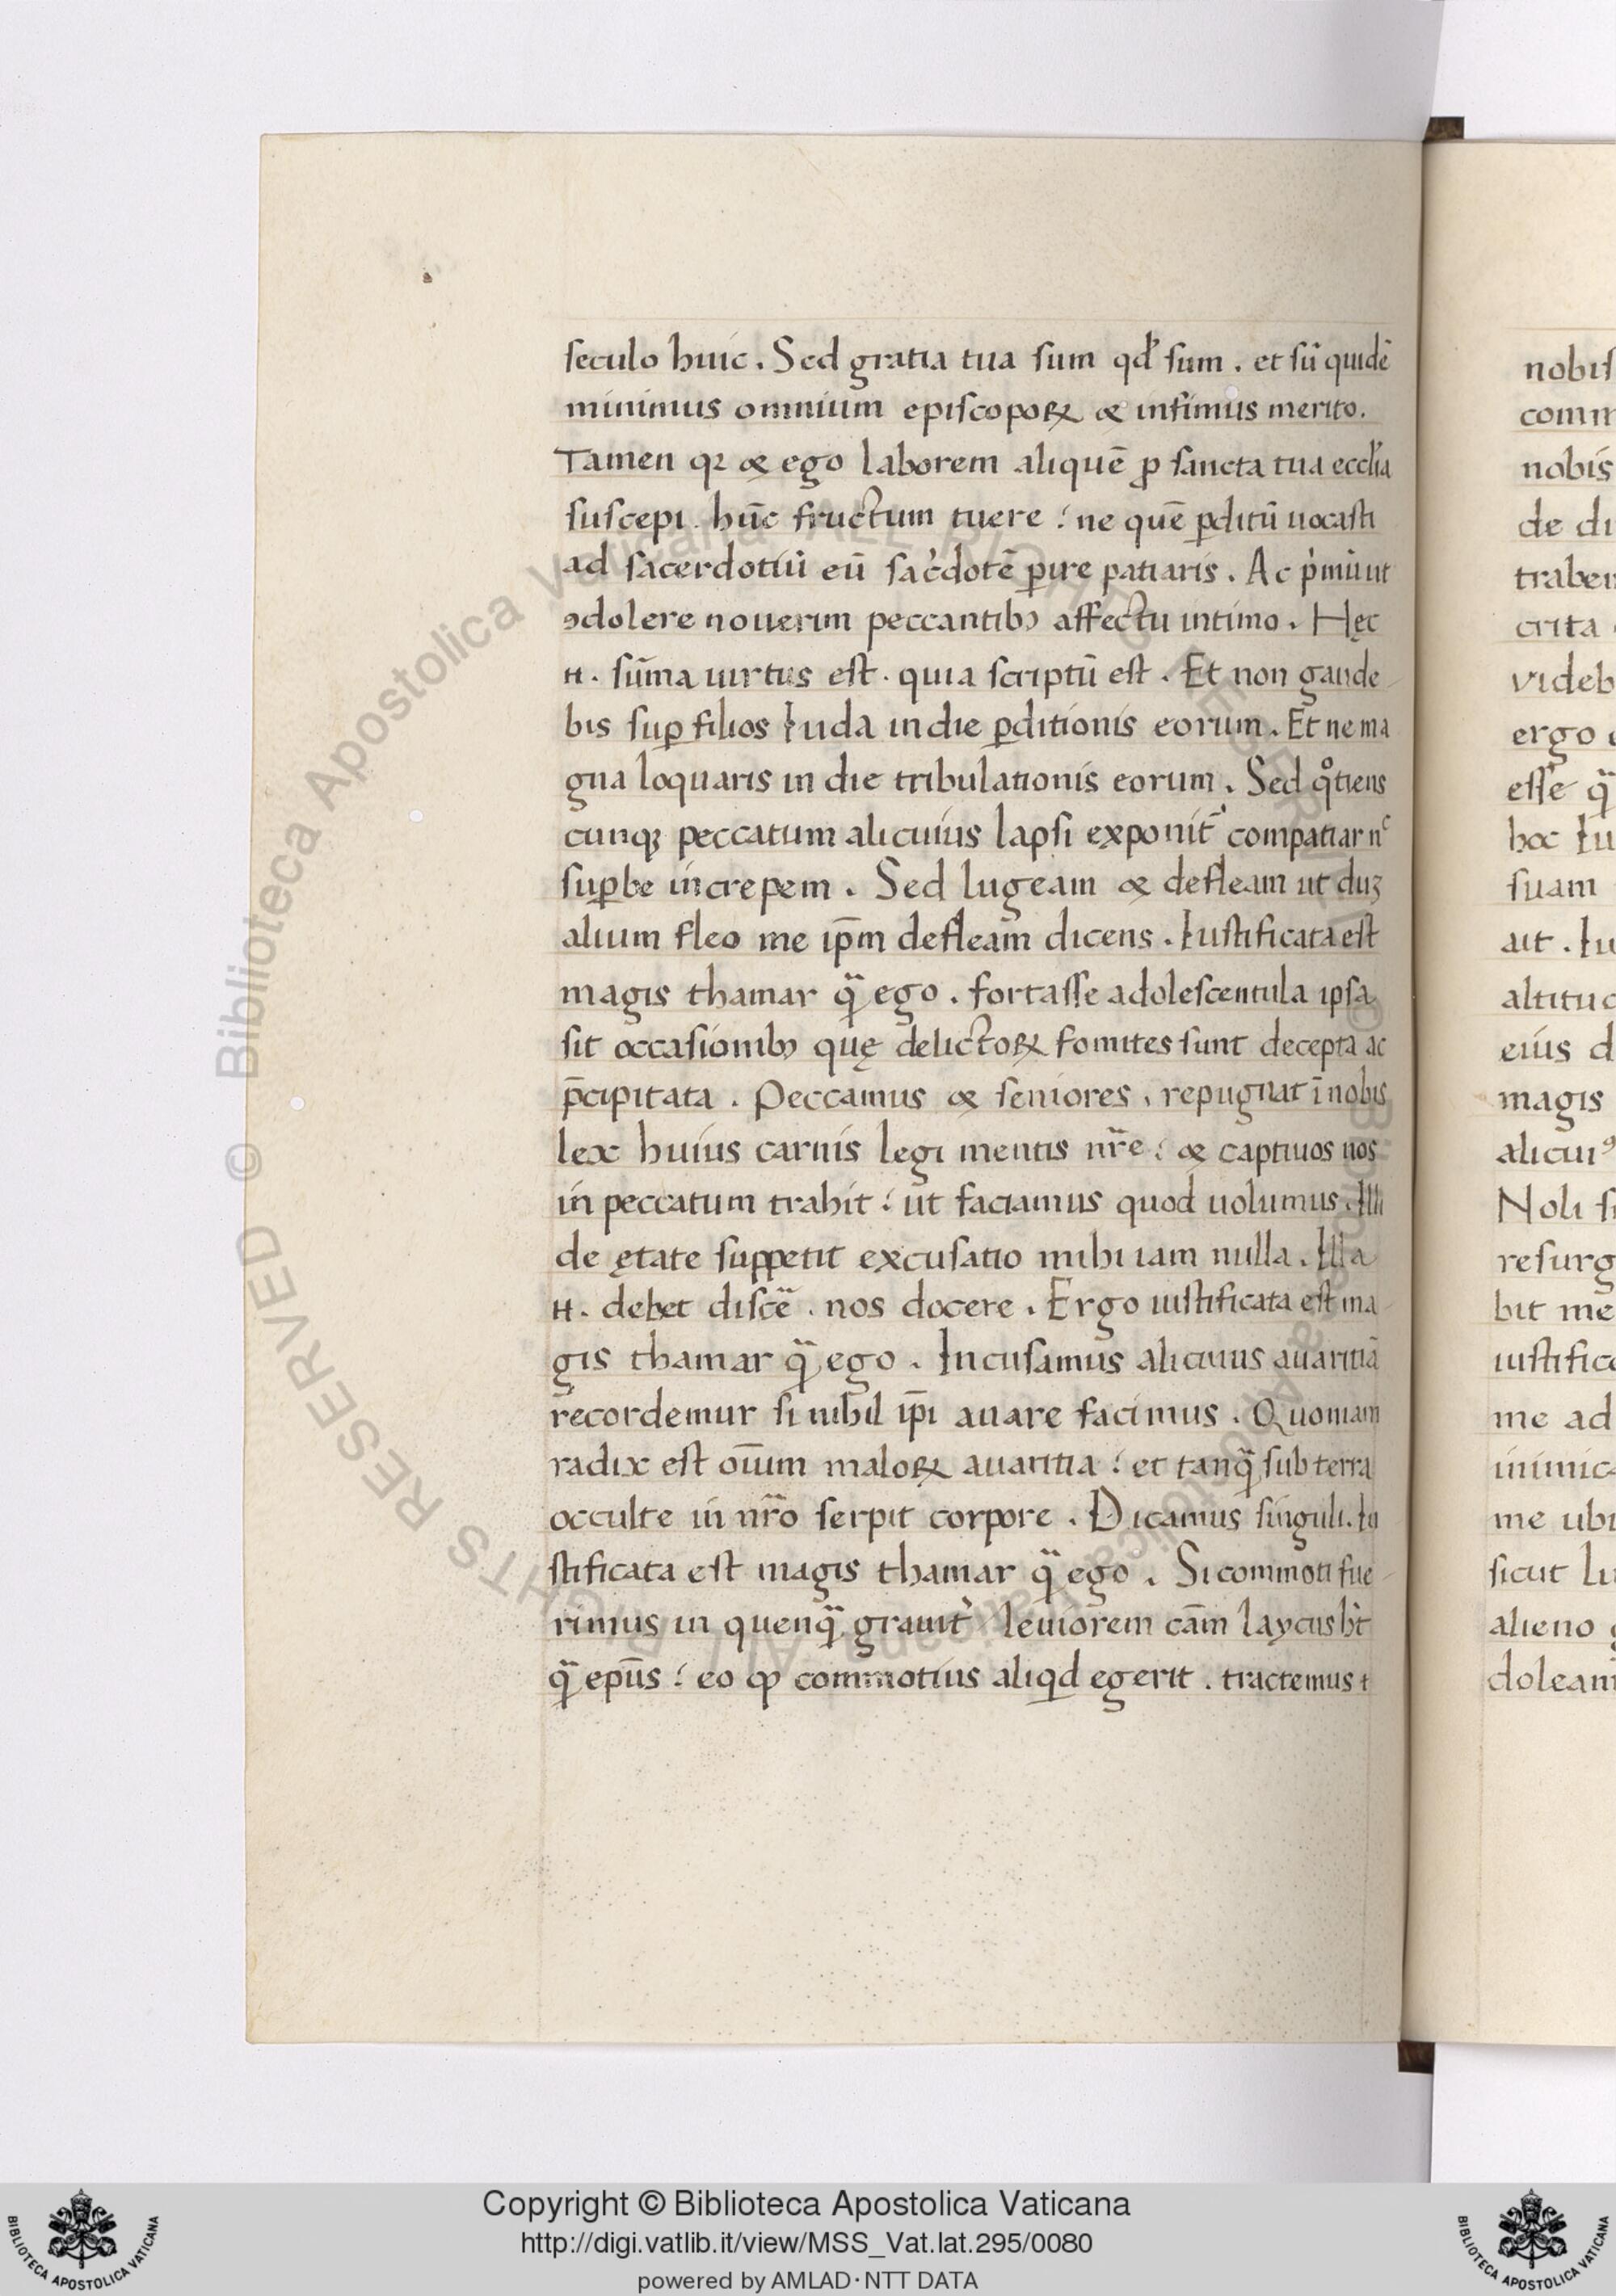 seculo huic. Sed gratia tua sum qd̛ sum. et sū quidē
minimus omnium episcopoꝝ & infimus merito.
Tamen qꝛ & ego laborem aliquē ꝓ sancta tua eccl̛ia
suscepi. hūc fructum tuere : ne quē ꝑditū uocasti
ad sacerdotiū eū sac̛dotē ꝑire patiaris. Ac p̛mū ut
ꝯdolere nouerim peccantibꝰ affectu intimo. Hęc
н. sūma uirtus est. quia scriptū est. Et non gaude
bis suꝑ filios Iuda in die ꝑditionis eorum. Et ne ma
gna loquaris in die tribulationis eorum. Sed qͦtiens
cunqꝫ peccatum alicuius lapsi exponit̛ compatiar nᶜ
suꝑbe increpem. Sed lugeam & defleam ut duꝫ
alium fleo me ip̄m defleam dicens. Iustificata est
magis thamar qᷓ ego. fortasse adolescentula ipsa
sit occasionibꝰ quę delictoꝝ fomites sunt decepta ac
p̄cipitata. Peccamus & seniores, repugnat ī nobis
lex huius carnis legi mentis nr̄e : & captiuos nos
in peccatum trahit : ut faciamus quod uolumus. Illi
de ętate suppetit excusatio mihi iam nulla. Illa
н. debet discē. nos docere. Ergo iustificata est ma
gis thamar qᷓ ego. Incusamus alicuius auaritiā
recordemur si nihil ip̄i auare facimus. Quoniam
radix est oīum maloꝝ auaritia : et tanqᷓ sub terra
occulte in nr̄o serpit corpore. Dicamus singuli. Iu
stificata est magis thamar qᷓ ego. Si commoti fue
rimus in quenqᷓ grauit̛ leuiorem cām laycus h̛t
qᷓ ep̄us : eo ꝙ commotius aliqd egerit. tractemus t
nobis
nobis
de di
crita
videb
ergo
esse qᷓ
hoc Iu
suam
ait. Iu
eius d
magis
alicuiꝰ
Noli si
resurg
bit me
me ad
me ubi
sicut
alieno
doleam
© Biblioteca Apostolica Vaticana ALL RIGHTS RESERVED
© Biblioteca Apostolica Vaticana ALL RIGHTS RESERVED
BIBLIOTECA APOSTOLICA VATICANA
Copyright © Biblioteca Apostolica Vaticana
http://digi.vatlib.it/view/MSS_Vat.lat.295/0080
powered by AMLAD·NTT DATA
BIBLIOTECA APOSTOLICA VATICANA